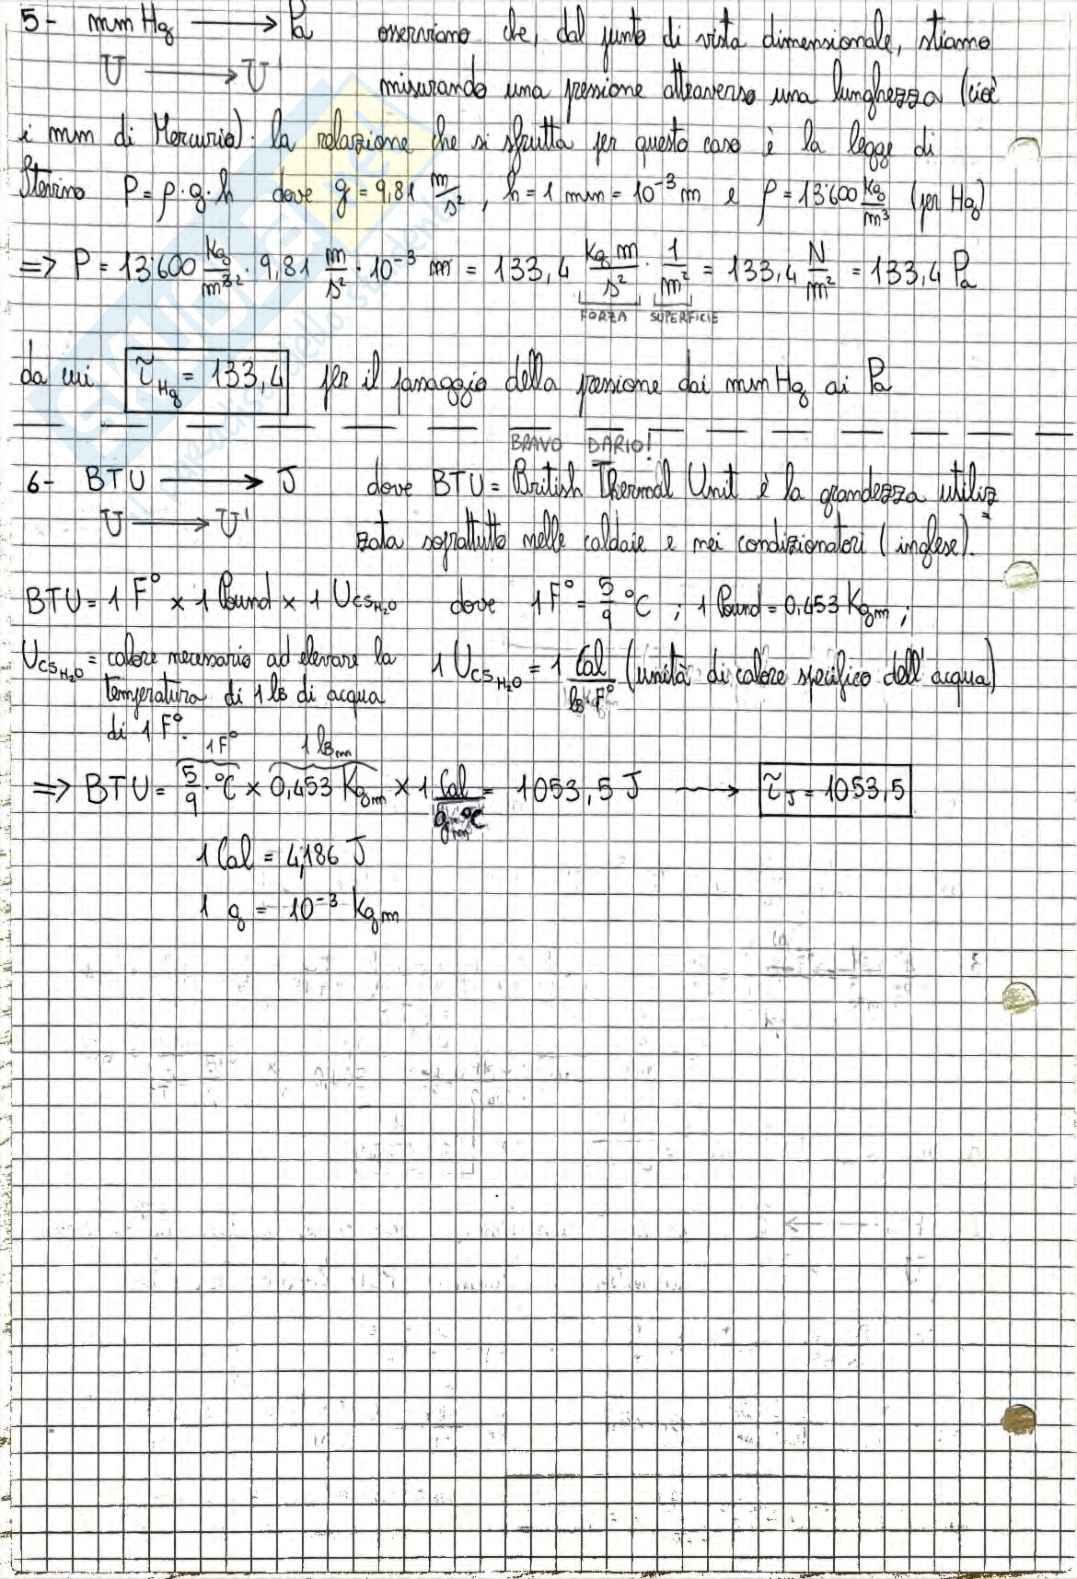 5- mm Hg → Pa osserviamo che, dal punto di vista dimensionale, stiamo
U → U' misurando una pressione attraverso una lunghezza (cioè
i mm di Mercurio). La relazione che si sfrutta per questo caso è la legge di
Stevino P = ρ·g·h dove g = 9,81 m/s², h = 1 mm = 10⁻³ m e ρ = 13'600 kg/m³ (per Hg)
=> P = 13'600 kg/m³ · 9,81 m/s² · 10⁻³ m = 133,4 kg m/s² · 1/m² = 133,4 N/m² = 133,4 Pa
FORZA SUPERFICIE
da cui τ̃Hg = 133,4 per il passaggio della pressione dai mmHg ai Pa
BRAVO DARIO!
6- BTU → J dove BTU = British Thermal Unit è la grandezza utiliz
U → U' zata soprattutto nelle caldaie e nei condizionatori (inglese).
BTU = 1 F° × 1 Pound × 1 UCSH₂O dove 1F° = 5/9 °C ; 1 Pound = 0,453 Kgm ;
UCSH₂O = calore necessario ad elevare la 1 UCSH₂O = 1 Cal/lb·F° (unità di calore specifico dell'acqua)
temperatura di 1 lb di acqua
di 1 F°.
1F° 1 lbm
=> BTU = 5/9 · °C × 0,453 Kgm × 1 Cal/gm·°C = 1053,5 J → τ̃J = 1053,5
1 Cal = 4,186 J
1 g = 10⁻³ Kgm